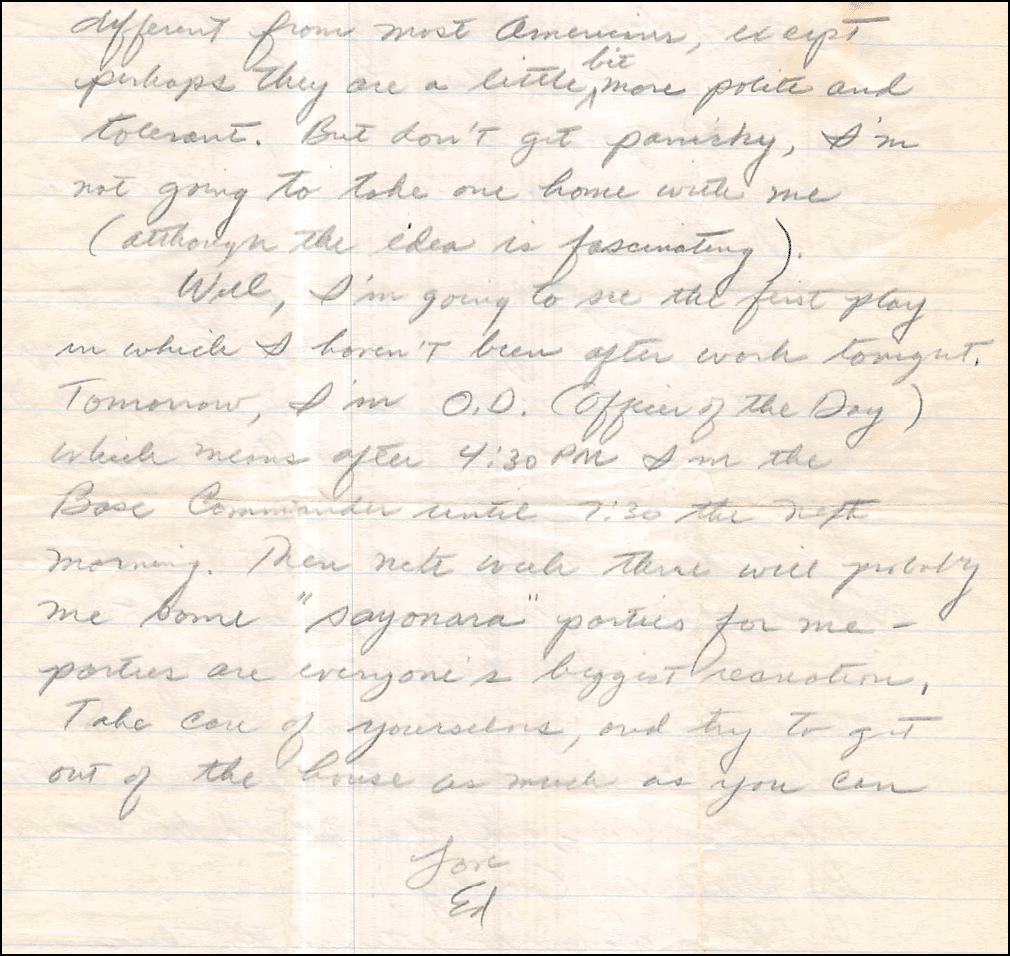 different from most Americans, except
perhaps they are a little bit more polite and
tolerant. But don't get panicky, I'm
not going to take one home with me
(although the idea is fascinating).
Well, I'm going to see the first play
in which I haven't been after work tonight.
Tomorrow, I'm O.D. (Officer of the Day)
which means after 4:30 PM I'm the
Base Commander until 7:30 the next
morning. Then next week there will probably
me some "sayonara" parties for me -
parties are everyone's biggest recreation.
Take care of yourselves, and try to get
out of the house as much as you can
Love
Ed